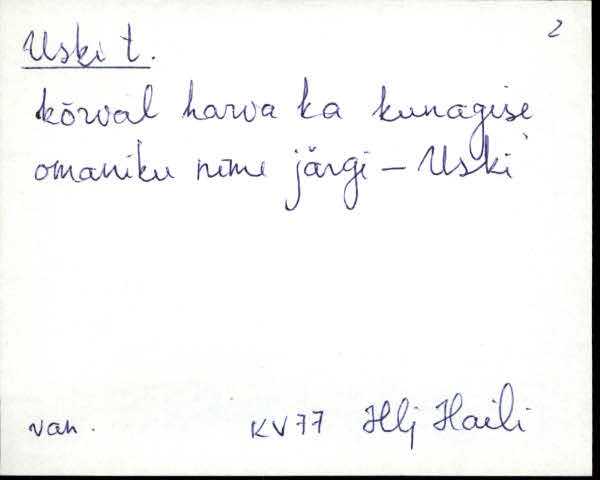 2
Uski t.
kõrval harva ka kunagise
omaniku nime järgi – Uski
van. KV 77 Hlj Haili